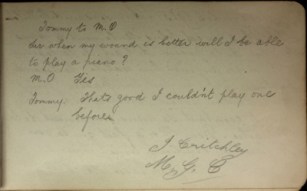 Tommy to M.O
Sir when my wound is better will I be able
to play a piano?
M.O Yes
Tommy. Thats good I couldn't play one
before
J Critchley
M. G. C